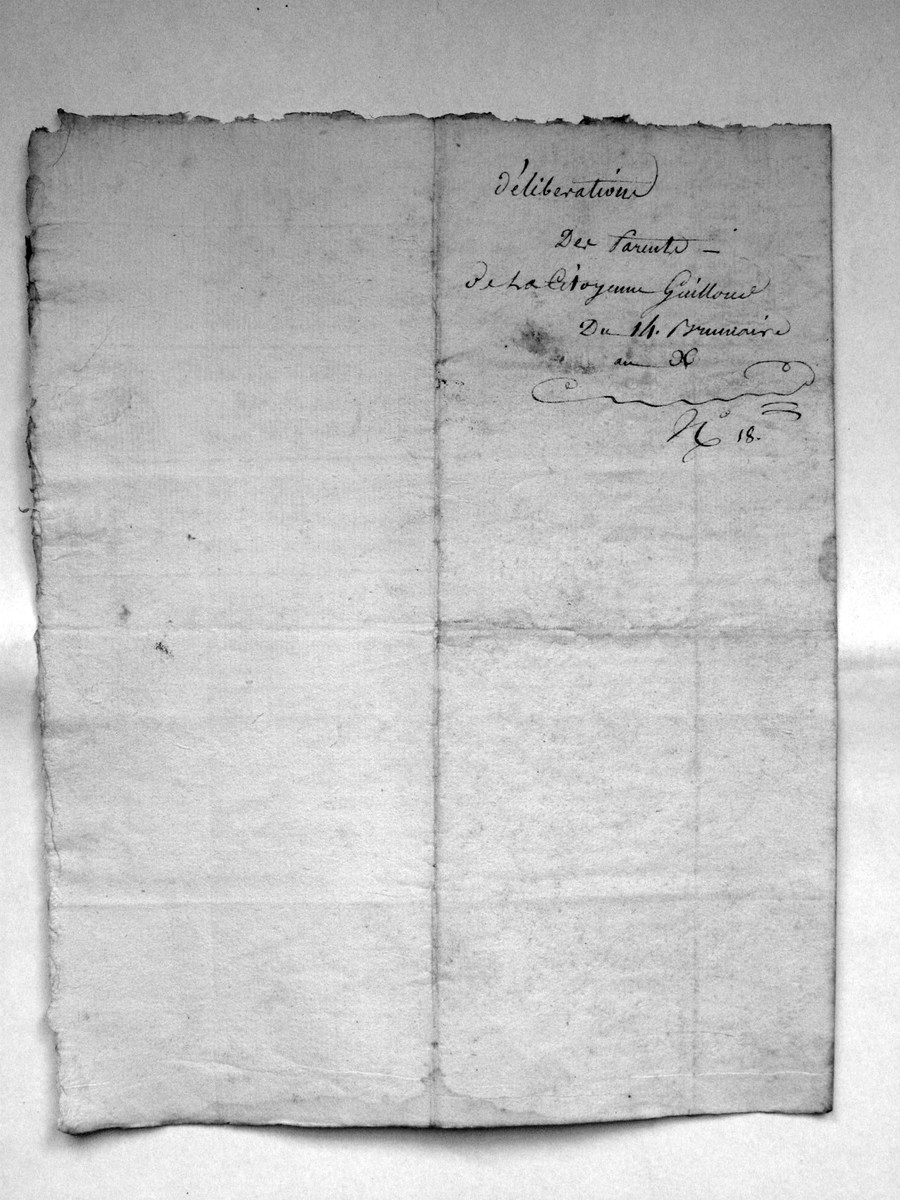 déliberation
Des Parents —
De La Citoyenne Guillond
Du 14. Brumaire
an X
N° 18.